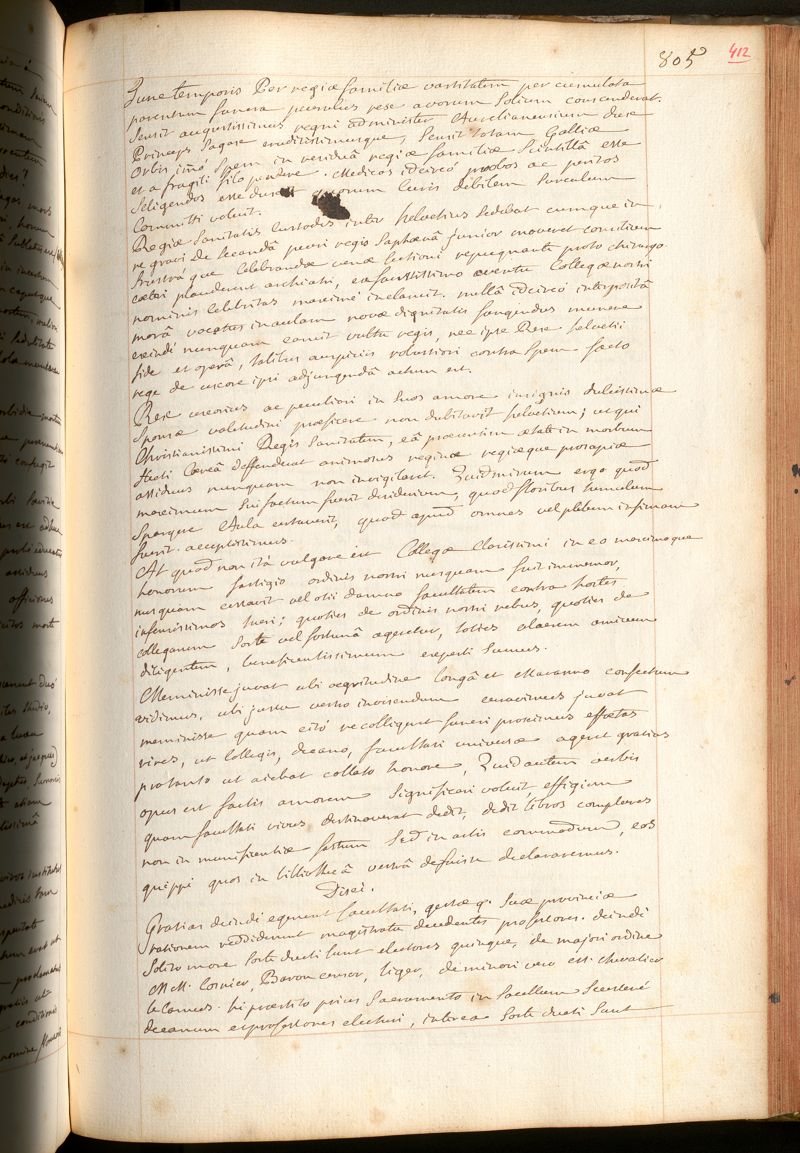 805
412
Tunc temporis Per regiae familiae vastitatem per cumulata
parentum funera puerulus rex avorum solium conscenderat.
sensit augustissimus regni administer Aurelianensium dux
Princeps sagax eruditissimusque, sensit totam Galliae
orbis imó spem in residuâ regiae familiae scintillâ esse
et a fragili filo pendere. Medicos idcircó probos ac peritos
seligendos esse duxit quorum curis debilem surculum
Committi voluit.
Regiae sanitatis custodes inter helvetius sedebat cumque in
re gravi de secandâ pueri regis saphaenâ junior moveret consilium
frustrá que celebrandae venae sectioni repugnante proto chirurgo
caeteri plauderent archiatri, ex faustissimo eventu Collegae nostri
nominis celebritas maximé inclaruit. nullâ idcircó interpositâ
morâ vocatus in aulam novae dignitatis fungendus munere
exindé nunquam caruit vultu regis, nec ipse Rex helvetii
fide et operâ, talibus auspiciis robustiori contra spem facto
rege de uxore ipsi adjungendâ actum est.
Rex uxorius ac peculiori in suos amore insignis dulcissimae
sponsae valetudini praeficere non dubitavit helvetium; ut qui
Christianissimi Regis sanitatem, eâ praesertim aetate in morbum
flecti cereâ deffenderat animosus reginae regiaeque prosapiae
assiduus nunquam non invigilaret. Quid mirum ergo quod
maximum sui factum fuerit desiderium, quod floribus tumulum
spargere Aula certaverit, quod apud omnes vel plebem infimam
fuerit acceptissimus.
At quod non itá vulgare est Collegae Clarissimi in eo maximoque
honorum fastigio ordinis nostri nusquam fuit immemor,
nusquam cessavit vel otii damno facultatem contra hostes
infensissimos tueri; quoties de ordinis nostri rebus, quoties de
collegarum sorte vel fortunâ ageretur, toties alacrem amicum
diligentem, beneficentissimum experti sumus.
Meminisse juvat ubi aegritudine longâ et Macarno confectum
vidimus, ubi justa verso inorrendum curavimus juvat
meminisse quam citó recolligent funeri proximus effoetas
vires, ut collegis, decano, facultati universae ageret gratias
pro tanto ut aiebat collato honore, Quid autem verbis
opus est factis amorem significari voluit, effigiem
quam facultati vivus destinaverat dedit, dedit libros complures
non in munificentiae fastum sed in artis commodum, eos
quippé quos in bibliothecâ vestrâ defuisse declaravemus.
Dixi.
Gratias deindé egerunt facultati, gestaeq. suae provinciae
rationem reddiderunt magistratu decedentes professores. deindé
solito more sorte ducti sunt electores quinque, de majori ordine
M.M. Cosnier, Baron censor, Liger, de minori vero M. chevalier
le Camus. hi praestito prius sacramento in sacellum secessere
decanum et professores electuri, interea sorte ducti sunt